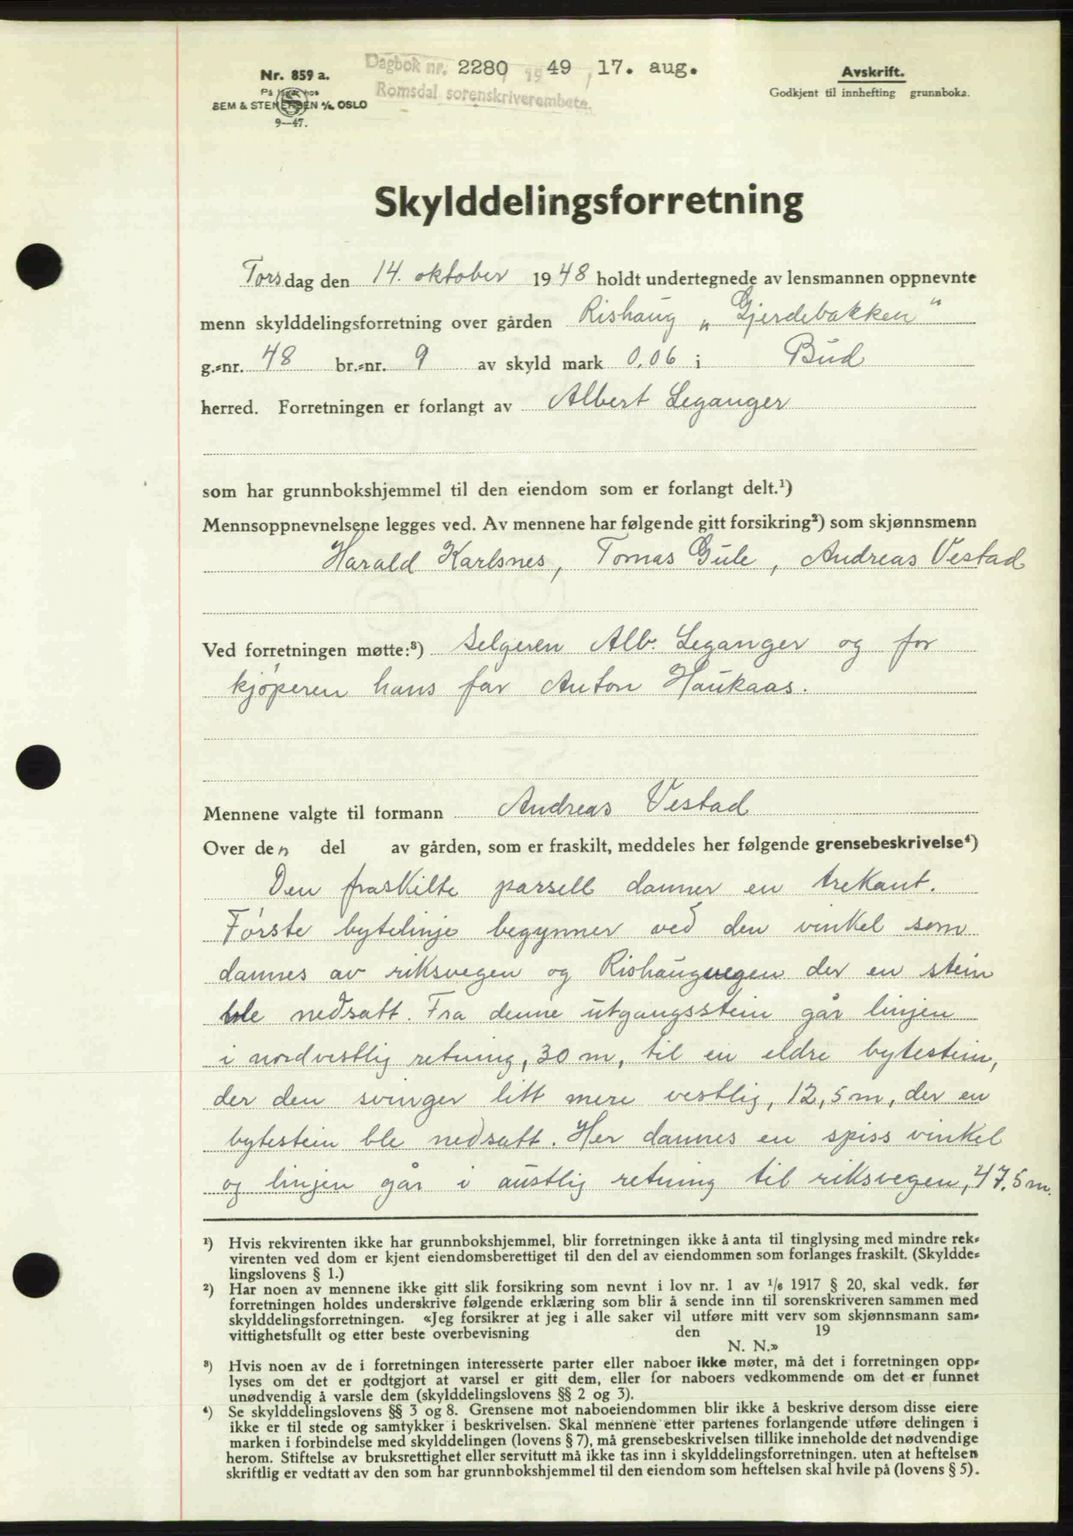 Dagbok nr. 2280 1949, 17. aug.
Romsdal sorenskriverembete.
Nr. 859 a.
På lager hos
SEM & STENERSEN A/S, OSLO
9—47.
Avskrift.
Godkjent til innhefting grunnboka.
Skylddelingsforretning
Torsdag den 14. oktober 1948 holdt undertegnede av lensmannen oppnevnte
menn skylddelingsforretning over gården Rishaug „Gjerdebakken“
g.-nr. 48 br.-nr. 9 av skyld mark 0,06 i Bud
herred. Forretningen er forlangt av Albert Leganger
som har grunnbokshjemmel til den eiendom som er forlangt delt.¹)
Mennsoppnevnelsene legges ved. Av mennene har følgende gitt forsikring²) som skjønnsmenn
Harald Karlsnes, Tomas Gule, Andreas Vestad
Ved forretningen møtte:³) Selgeren Alb. Leganger og for
kjöperen hans far Anton Haukaas.
Mennene valgte til formann Andreas Vestad
Over den del av gården, som er fraskilt, meddeles her følgende grensebeskrivelse⁴)
Den fraskilte parsell danner en trekant.
Første bytelinje begynner ved den vinkel som
dannes av riksvegen og Rishaugvegen der en stein
ble nedsatt. Fra denne utgangsstein går linjen
i nordvestlig retning, 30 m, til en eldre bytestein,
der den svinger litt mere vestlig, 12,5 m, der en
bytestein ble nedsatt. Her dannes en spiss vinkel
og linjen går i austlig retning til riksvegen, 47,5 m.
¹) Hvis rekvirenten ikke har grunnbokshjemmel, blir forretningen ikke å anta til tinglysing med mindre rek-
virenten ved dom er kjent eiendomsberettiget til den del av eiendommen som forlanges fraskilt. (Skyldde-
lingslovens § 1.)
²) Har noen av mennene ikke gitt slik forsikring som nevnt i lov nr. 1 av 1/6 1917 § 20, skal vedk. før
forretningen holdes underskrive følgende erklæring som blir å sende inn til sorenskriveren sammen med
skylddelingsforretningen. «Jeg forsikrer at jeg i alle saker vil utføre mitt verv som skjønnsmann sam-
vittighetsfullt og etter beste overbevisning den 19
N. N.»
³) Hvis noen av de i forretningen interesserte parter eller naboer ikke møter, må det i forretningen opp-
lyses om det er godtgjort at varsel er gitt dem, eller for naboers vedkommende om det er funnet
unødvendig å varsle dem (skylddelingslovens §§ 2 og 3).
⁴) Se skylddelingslovens §§ 3 og 8. Grensene mot naboeiendommen blir ikke å beskrive dersom disse eiere
ikke er til stede og samtykker i beskrivelsen. Skal mennene etter partenes forlangende utføre delingen i
marken i forbindelse med skylddelingen (lovens § 7), må grensebeskrivelsen tillike inneholde det nødvendige
herom. Stiftelse av bruksrettighet eller servitutt må ikke tas inn i skylddelingsforretningen, uten at heftelsen
skriftlig er vedtatt av den som har grunnbokshjemmel til den eiendom som heftelsen skal hvile på (lovens § 5).